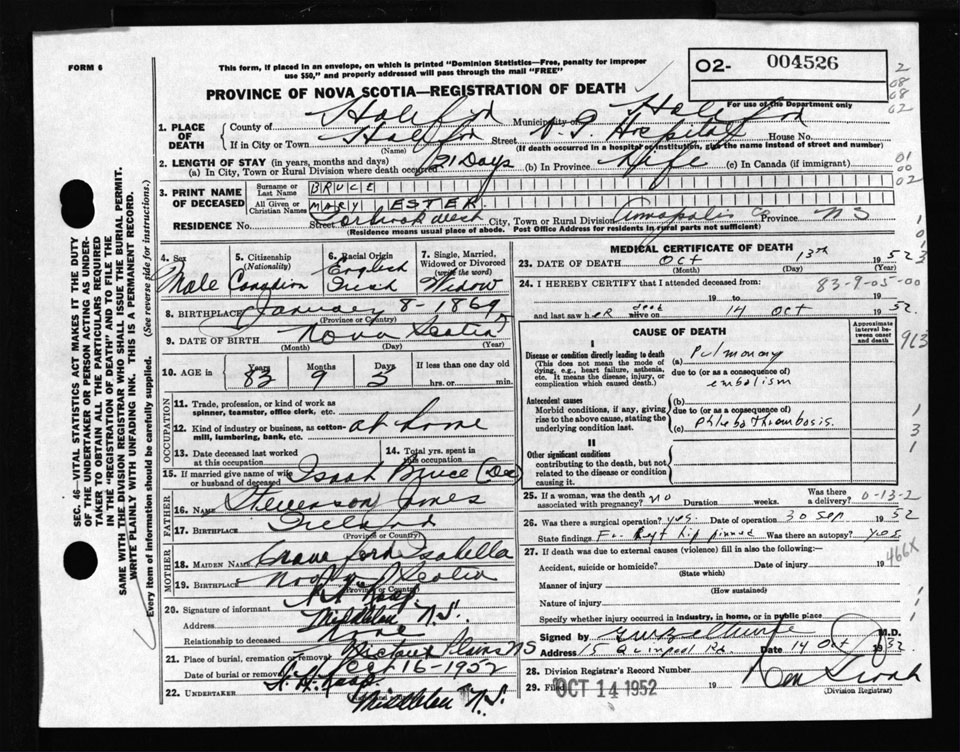 FORM 6
This form, if placed in an envelope, on which is printed "Dominion Statistics—Free, penalty for improper
use $50," and properly addressed will pass through the mail "FREE"
02- 004526
For use of the Department only
PROVINCE OF NOVA SCOTIA—REGISTRATION OF DEATH
2
08
08
02
1. PLACE OF DEATH
County of Municipality of
If in City or Town Street V. G. Hospital House No.
(Name) (If death occurred in a hospital or institution, give the name instead of street and number)
2. LENGTH OF STAY (in years, months and days)
(a) In City, Town or Rural Division where death occurred 21 Days (b) In Province Life (c) In Canada (if immigrant)
01
00
02
3. PRINT NAME OF DECEASED
Surname or Last Name BRUCE
All Given or Christian Names MARY ESTER
RESIDENCE No. Street Torbrook West City, Town or Rural Division Annapolis Co Province NS
(Residence means usual place of abode. Post Office Address for residents in rural parts not sufficient)
SEC. 46—VITAL STATISTICS ACT MAKES IT THE DUTY
OF THE UNDERTAKER OR PERSON ACTING AS UNDER-
TAKER TO OBTAIN ALL THE PARTICULARS REQUIRED
IN THE "REGISTRATION OF DEATH" AND TO FILE THE
SAME WITH THE DIVISION REGISTRAR WHO SHALL ISSUE THE BURIAL PERMIT.
WRITE PLAINLY WITH UNFADING INK. THIS IS A PERMANENT RECORD.
Every item of information should be carefully supplied. (See reverse side for instructions.)
4. Sex 5. Citizenship (Nationality) 6. Racial Origin 7. Single, Married, Widowed or Divorced (write the word)
Male Canadian English Irish Widow
8. BIRTHPLACE January 8-1869
(Province or Country)
9. DATE OF BIRTH Nova Scotia
(Month) (Day) (Year)
10. AGE in Years Months Days If less than one day
83 9 5 hrs. or min.
OCCUPATION
11. Trade, profession, or kind of work as
spinner, teamster, office clerk, etc.
12. Kind of industry or business, as cotton-
mill, lumbering, bank, etc. at home
13. Date deceased last worked
at this occupation
14. Total yrs. spent in
this occupation
15. If married give name of wife
or husband of deceased Bruce (Dec)
FATHER
16. Name Stevenson Jones
17. Birthplace Ireland
(Province or Country)
MOTHER
18. Maiden Name Isabella
19. Birthplace Nova Scotia
(Province or Country)
20. Signature of informant
Address Middleton N.S.
Relationship to deceased None
21. Place of burial, cremation or removal Plains NS
Date of burial or removal Oct 16-1952
22. UNDERTAKER Middleton N.S.
(Name and Address)
MEDICAL CERTIFICATE OF DEATH
23. DATE OF DEATH Oct 13th 1952
(Month) (Day) (Year)
24. I HEREBY CERTIFY that I attended deceased from: 83-9-05-00
19 to 19
and last saw her dead alive on 14 Oct 1952
CAUSE OF DEATH
Approximate interval between onset and death
I
Disease or condition directly leading to death
(This does not mean the mode of
dying, e.g., heart failure, asthenia,
etc. It means the disease, injury, or
complication which caused death.)
(a) Pulmonary
due to (or as a consequence of)
embolism
Antecedent causes
Morbid conditions, if any, giving
rise to the above cause, stating the
underlying condition last.
(b)
due to (or as a consequence of)
(c) Phlebo Thrombosis.
II
Other significant conditions
contributing to the death, but not
related to the disease or condition
causing it
25. If a woman, was the death
associated with pregnancy? no Duration weeks. Was there a delivery? 0-13-2
26. Was there a surgical operation? yes. Date of operation 30 Sep 1952
State findings hip pinned Was there an autopsy? yes
27. If death was due to external causes (violence) fill in also the following:—
Accident, suicide or homicide? Date of injury 19 466X
(State which)
Manner of injury
(How sustained)
Nature of injury
Specify whether injury occurred in industry, in home, or in public place
Signed by M.D.
Address 15 Quinpool Rd. Date 14 Oct 1952
28. Division Registrar's Record Number
29. Filed OCT 14 1952 19
(Division Registrar)